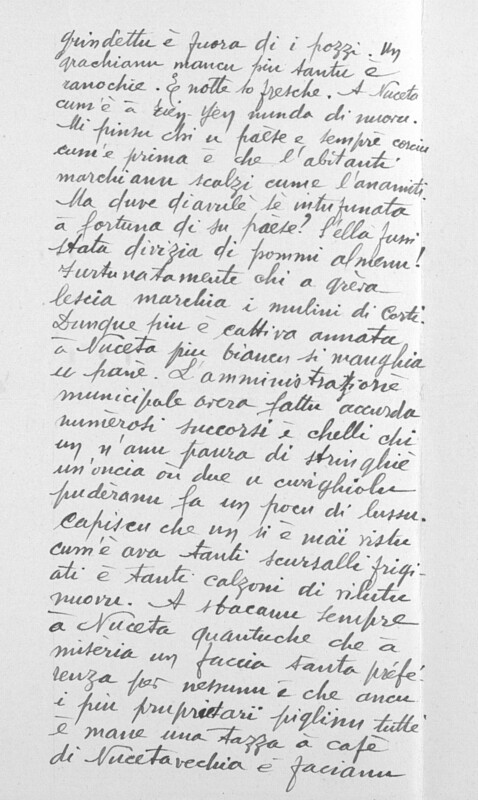 grindettu è fuora di i pozzi. Un
grachianu mancu piu tantu è
ranochie. È notte so fresche. A Nuceta
cum'è à Yen-Yen nunda di nuovu.
Mi pinsu chi u paese e sempre corciu
cum'e prima è che l'abitanti
marchianu scalzi cume l'anamiti.
Ma duve diavule sè intufunata
à fortuna di su paese? S'ella fussi
stata divizia di pommi almenu!
Furtunatamente chi a grèva
lescia marchia i mulini di Corti.
Dunque piu è cattiva annata
à Nuceta piu biancu si manghia
u pane. L'amministrazione
municipale avera fattu accurdà
numèrosi succorsi è chelli chi
un n'anu paura di stringhiè
un'oncia où due u curighiolu
puderanu fa un pocu di lussu.
Capiscu che un si è maï vistu
cum'è ava tanti scursalli frigi-
ati è tanti calzoni di vilutu
nuovu. A sbacanu sempre
à Nuceta quantuche che à
misèria un faccia tanta préfé-
renza per nessunu è che ancu
i piu pruprietarï piglinu tutte
è mane una tazza à cafè
di Nucetavechia è facianu